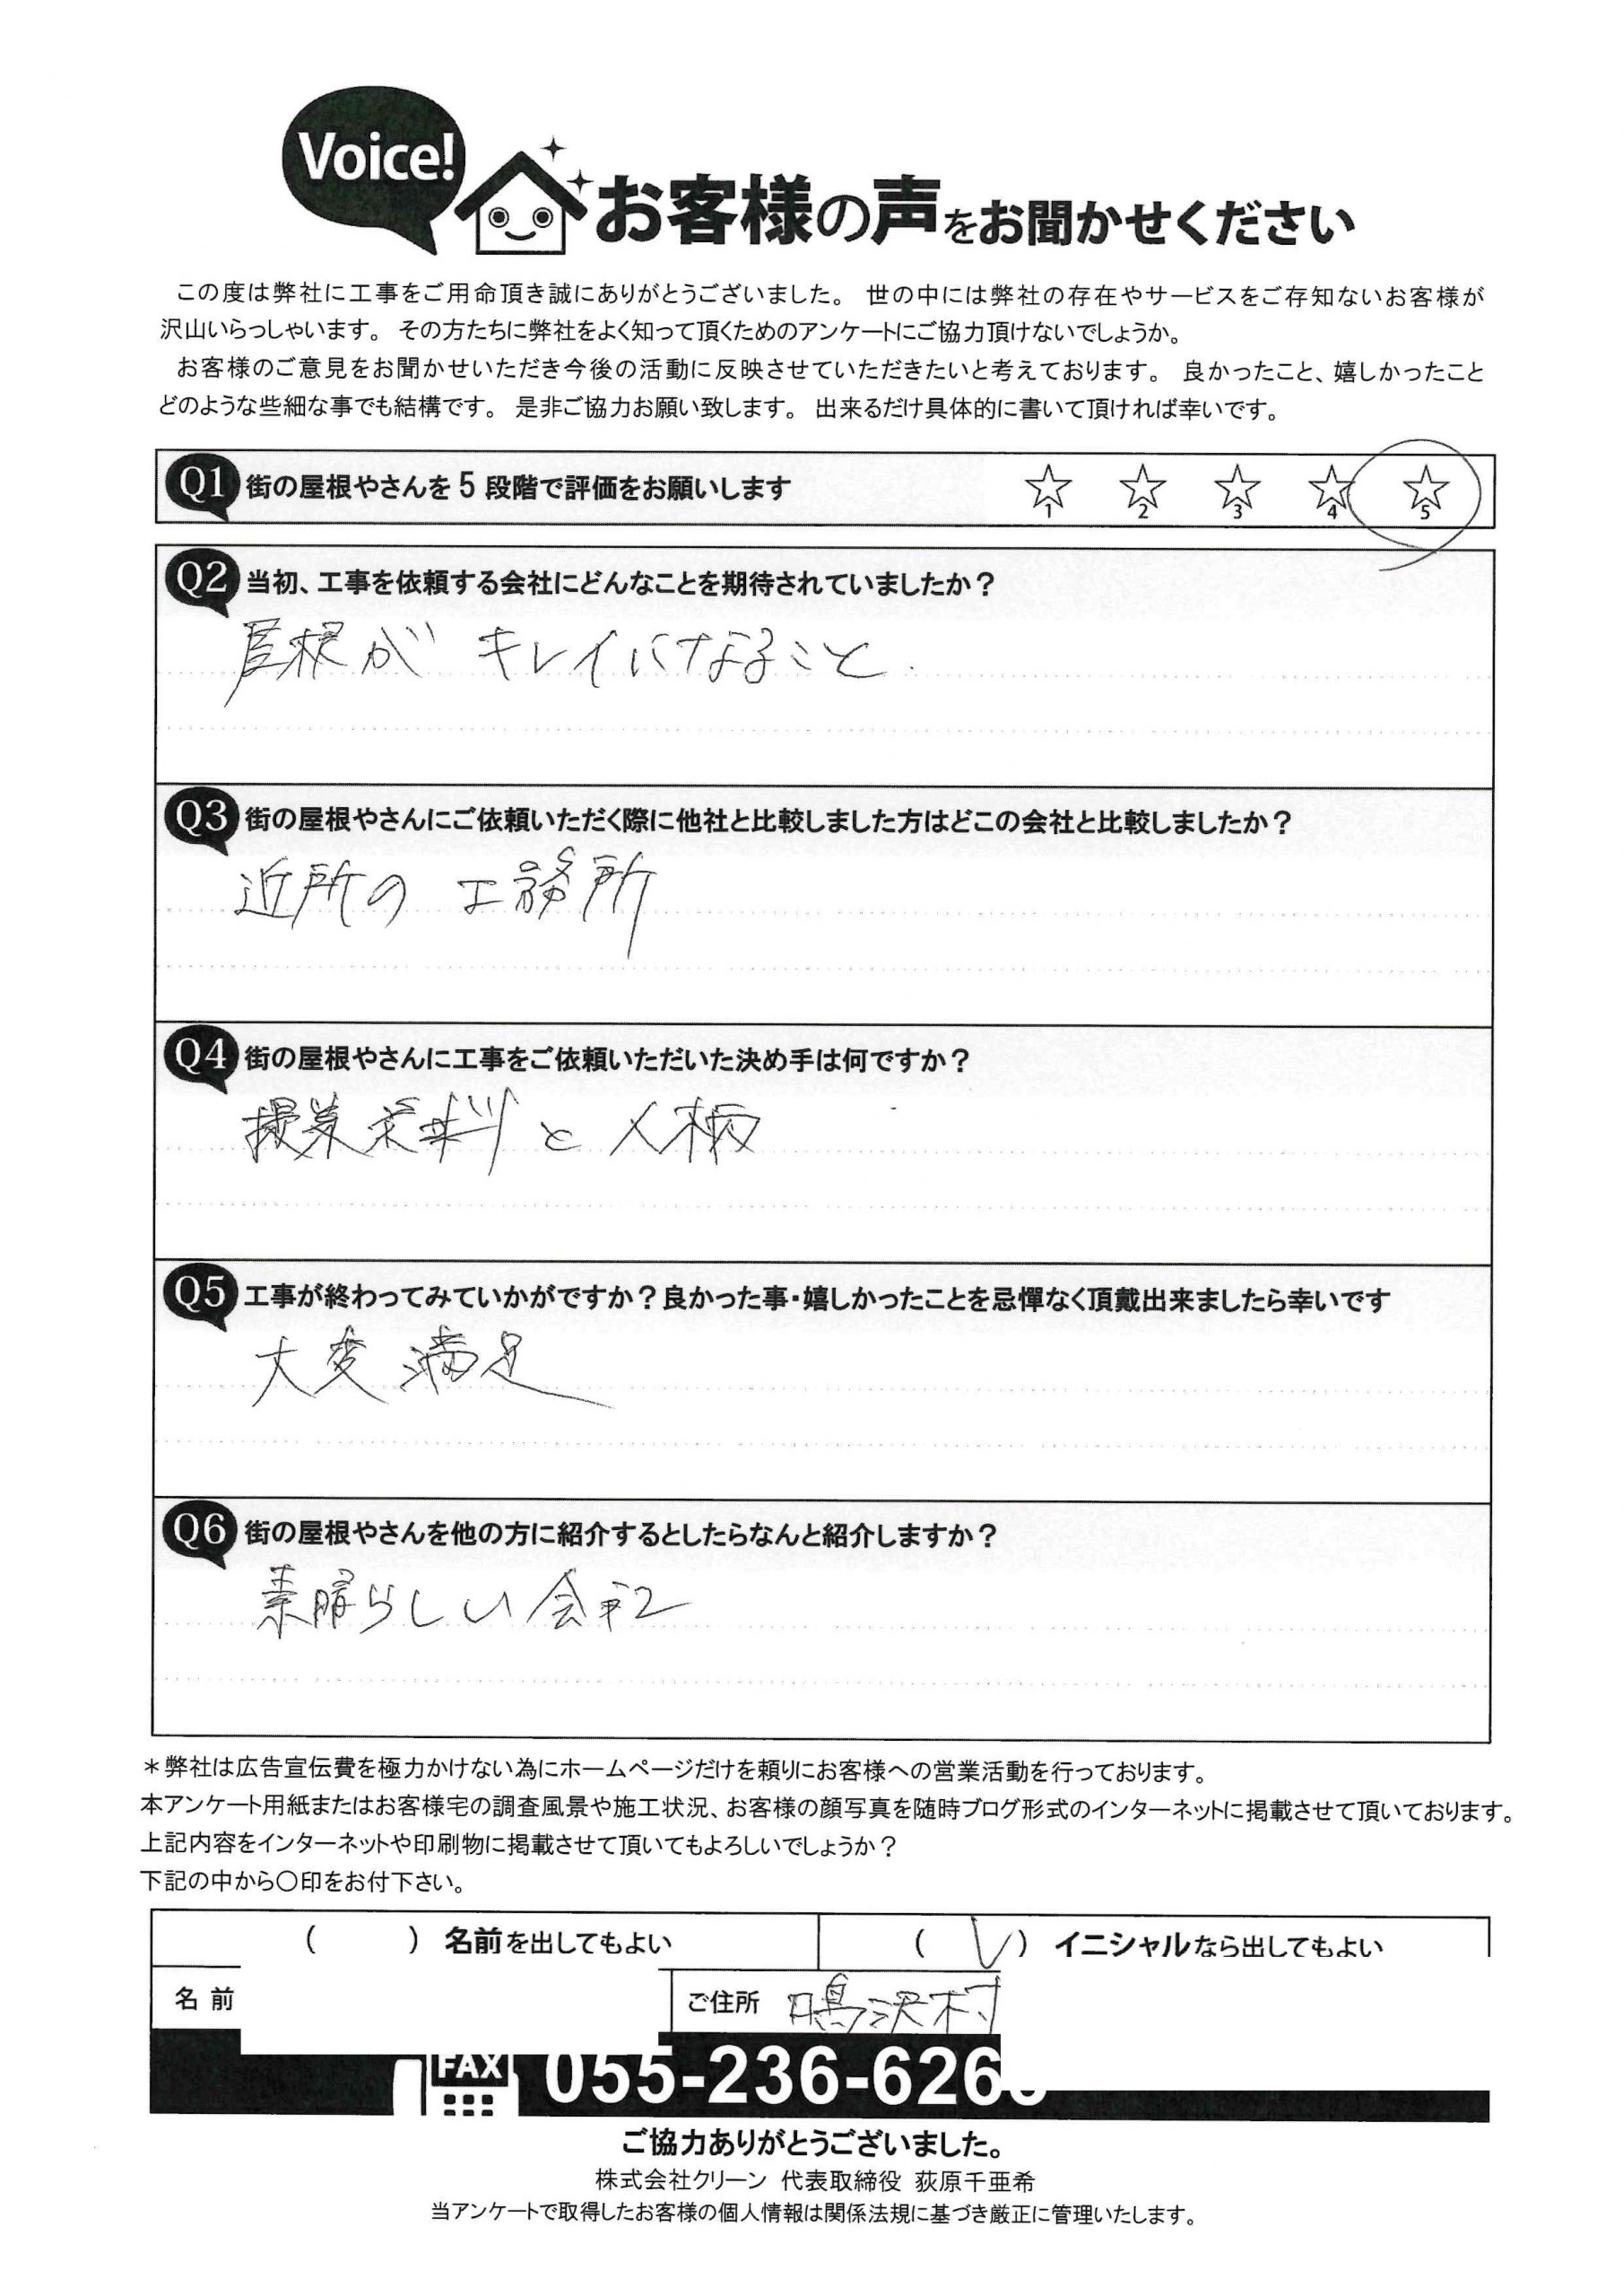 Voice!
お客様の声をお聞かせください
この度は弊社に工事をご用命頂き誠にありがとうございました。 世の中には弊社の存在やサービスをご存知ないお客様が
沢山いらっしゃいます。 その方たちに弊社をよく知って頂くためのアンケートにご協力頂けないでしょうか。
お客様のご意見をお聞かせいただき今後の活動に反映させていただきたいと考えております。 良かったこと、嬉しかったこと
どのような些細な事でも結構です。 是非ご協力お願い致します。 出来るだけ具体的に書いて頂ければ幸いです。
Q1 街の屋根やさんを5段階で評価をお願いします ☆1 ☆2 ☆3 ☆4 ☆5
Q2 当初、工事を依頼する会社にどんなことを期待されていましたか？
屋根が キレイになること.
Q3 街の屋根やさんにご依頼いただく際に他社と比較しました方はどこの会社と比較しましたか？
近所の 工務所
Q4 街の屋根やさんに工事をご依頼いただいた決め手は何ですか？
と 人柄
Q5 工事が終わってみていかがですか？良かった事・嬉しかったことを忌憚なく頂戴出来ましたら幸いです
大変 満足
Q6 街の屋根やさんを他の方に紹介するとしたらなんと紹介しますか？
素晴らしい 会社
＊弊社は広告宣伝費を極力かけない為にホームページだけを頼りにお客様への営業活動を行っております。
本アンケート用紙またはお客様宅の調査風景や施工状況、お客様の顔写真を随時ブログ形式のインターネットに掲載させて頂いております。
上記内容をインターネットや印刷物に掲載させて頂いてもよろしいでしょうか？
下記の中から〇印をお付下さい。
（ ） 名前を出してもよい （ レ ） イニシャルなら出してもよい
名前 ご住所 鳴沢村
FAX 055-236-626
ご協力ありがとうございました。
株式会社クリーン 代表取締役 荻原千亜希
当アンケートで取得したお客様の個人情報は関係法規に基づき厳正に管理いたします。